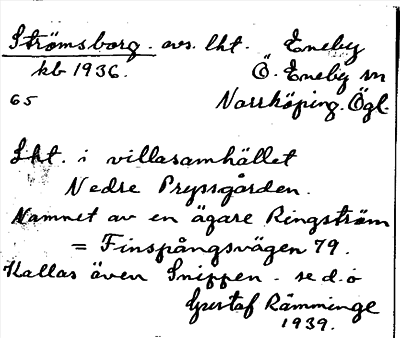 Strömsborg. avs. lht. Eneby
kb 1936. Ö. Eneby sn
65 Norrköping. Ögl.
Lht. i villasamhället
Nedre Pryssgården.
Namnet av en ägare Ringström
= Finspångsvägen 79.
Kallas även Snippen - se d.o
Gustaf Rämminge
1939.